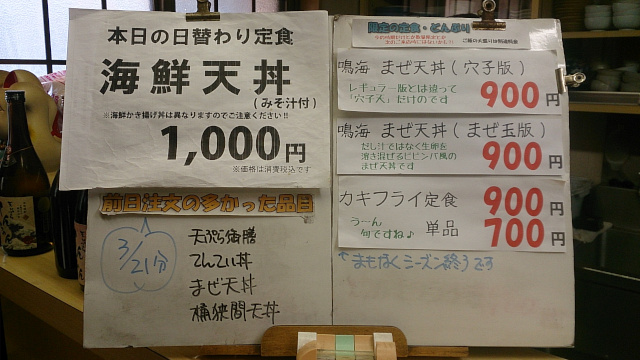 本日の日替わり定食
海鮮天丼
(みそ汁付)
※海鮮かき揚げ丼は異なりますのでご注意ください!!
1,000円
※価格は消費税込です
前日注文の多かった品目
3/21分
天ぷら御膳
てんてい丼
まぜ天丼
桶狭間天丼
限定の定食・どんぶり
ご飯の大盛りは別途料金
鳴海 まぜ天丼(穴子版)
レギュラー版とは違って
「穴子天」だけのです
900円
鳴海 まぜ天丼(まぜ玉版)
だし汁ではなく生卵を
溶き混ぜるビビンバ風の
まぜ天丼です
900円
カキフライ定食 900円
うーん
旬ですね♪
単品 700円
まもなくシーズン終うです